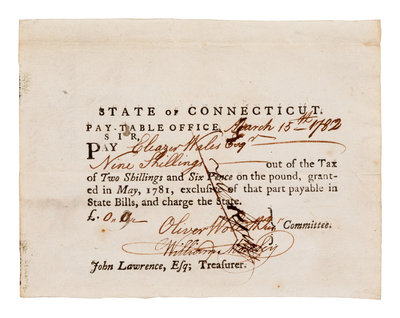 STATE OF CONNECTICUT.
PAY-TABLE OFFICE, March 15th 1782
SIR,
PAY Eleazer Wales Esqr
Nine Shillings out of the Tax
of Two Shillings and Six Pence on the pound, grant-
ed in May, 1781, exclusive of that part payable in
State Bills, and charge the State.
£. 0. 9
Oliver Wolcott Committee.
William
John Lawrence, Esq; Treasurer.